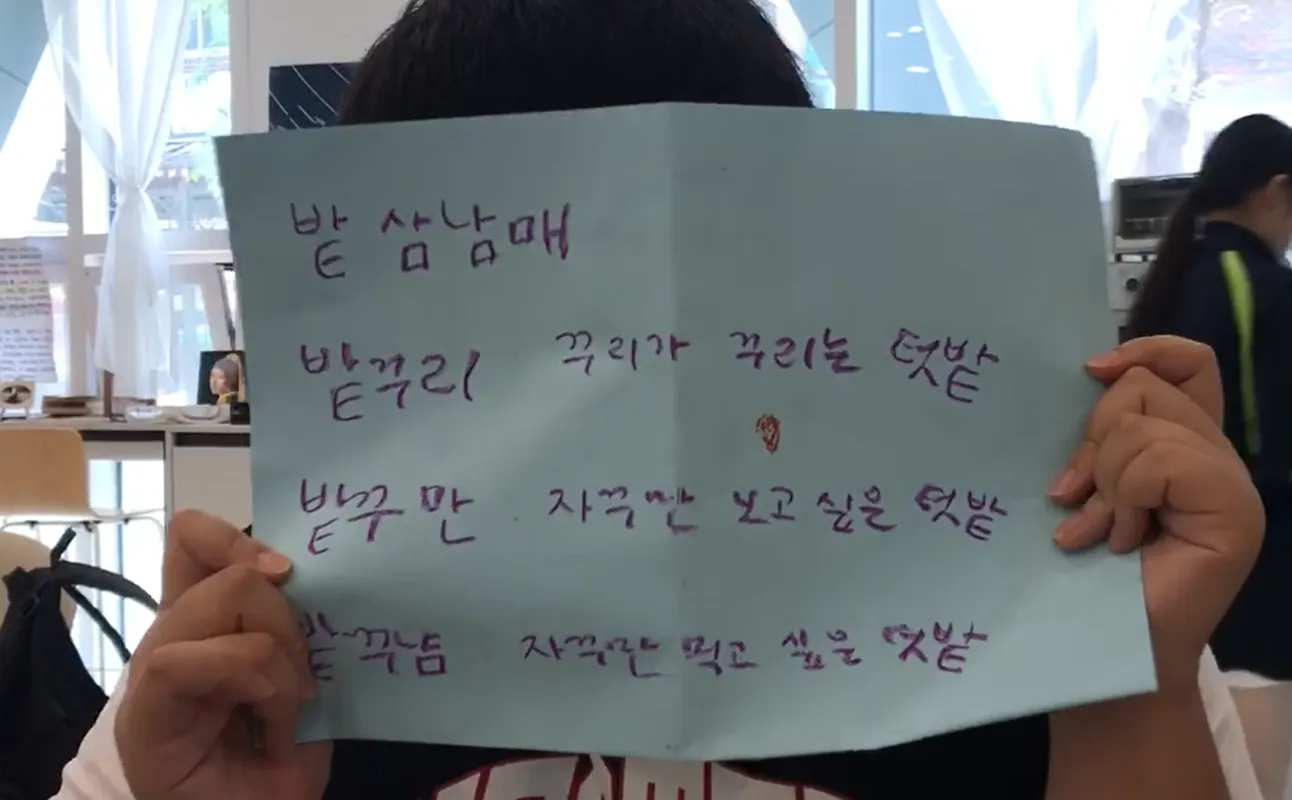 밭 삼남매
밭꾸리 꾸리가 꾸리는 텃밭
밭꾸만 자꾸만 보고 싶은 텃밭
밭꾸냠 자꾸만 먹고 싶은 텃밭